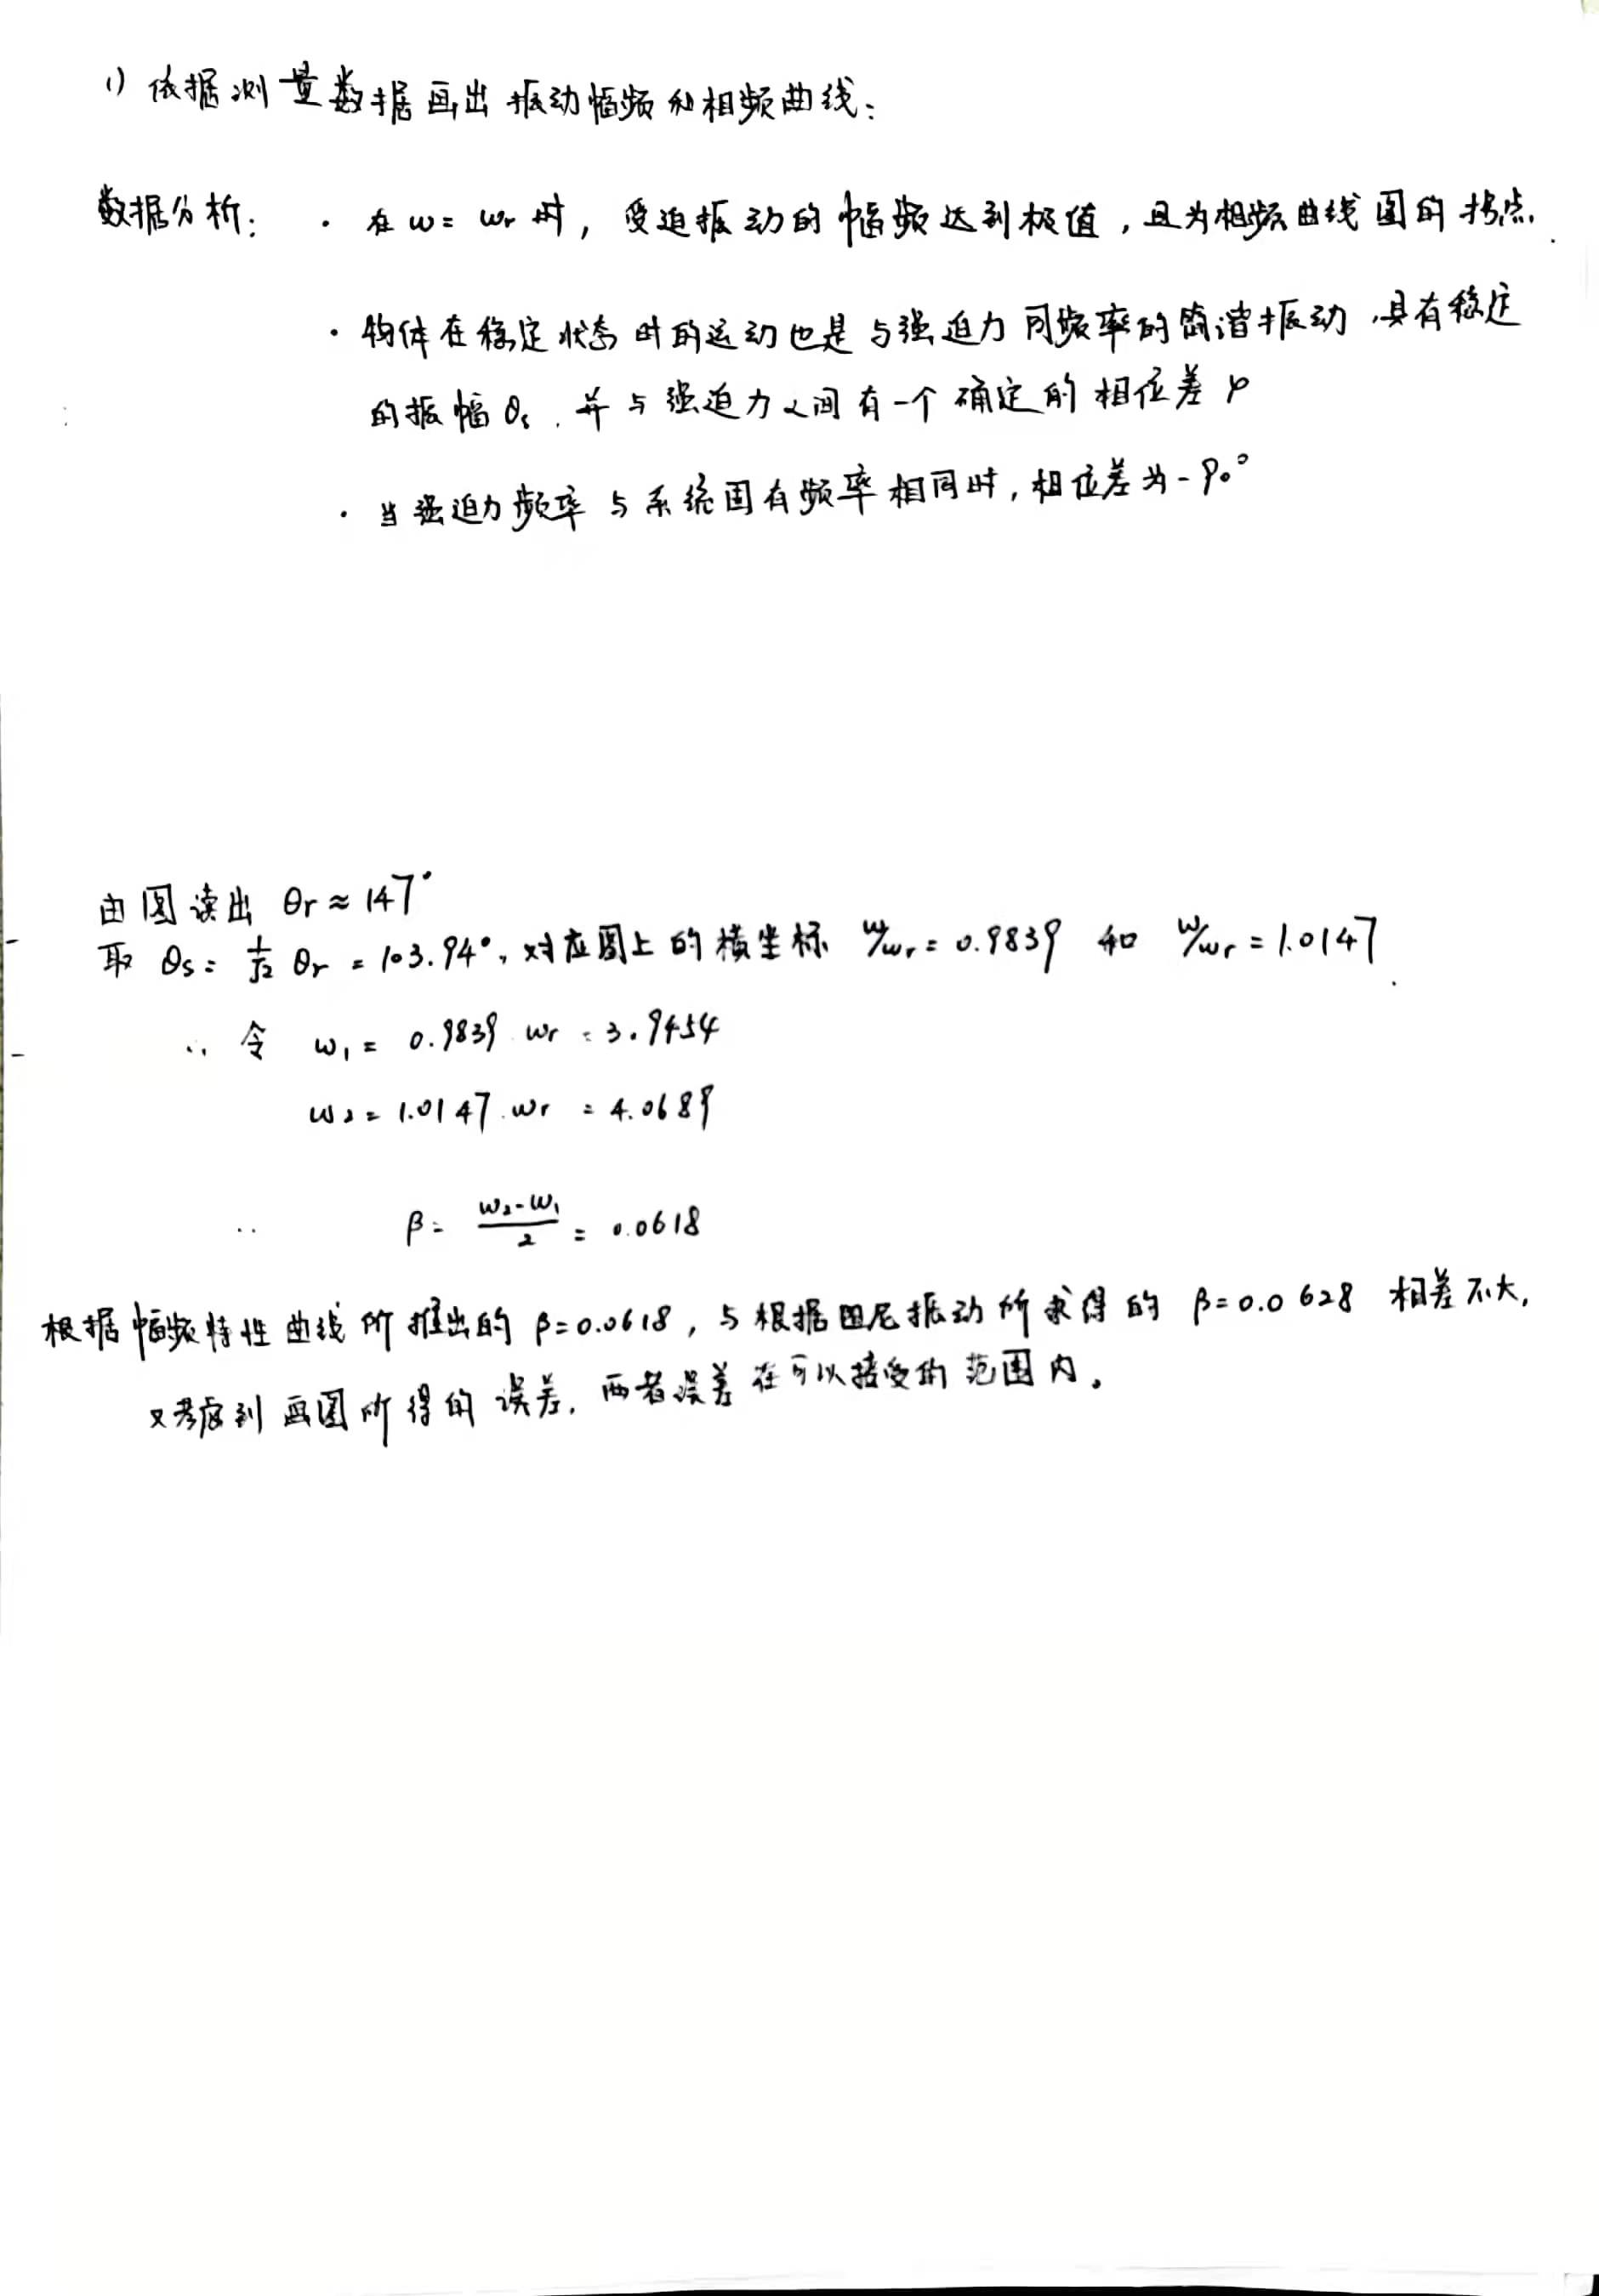 1) 依据测量数据画出振动幅频和相频曲线：
数据分析： · 在 ω = ωr 时，受迫振动的幅频达到极值，且为相频曲线图的拐点.
· 物体在稳定状态时的运动也是与强迫力同频率的简谐振动，具有稳定
的振幅 θs，并与强迫力之间有一个确定的相位差 φ
· 当强迫力频率与系统固有频率相同时，相位差为 -90°
由图读出 θr ≈ 147°
取 θs = 1/√2 θr = 103.94°，对应图上的横坐标 ω/ωr = 0.9839 和 ω/ωr = 1.0147.
∴ 令 ω₁ = 0.9839 · ωr = 3.9454
ω₂ = 1.0147 · ωr = 4.0689
∴ β = (ω₂-ω₁)/2 = 0.0618
根据幅频特性曲线所推出的 β=0.0618，与根据阻尼振动所求得的 β=0.0628 相差不大，
又考虑到画图所得的误差，两者误差在可以接受的范围内。